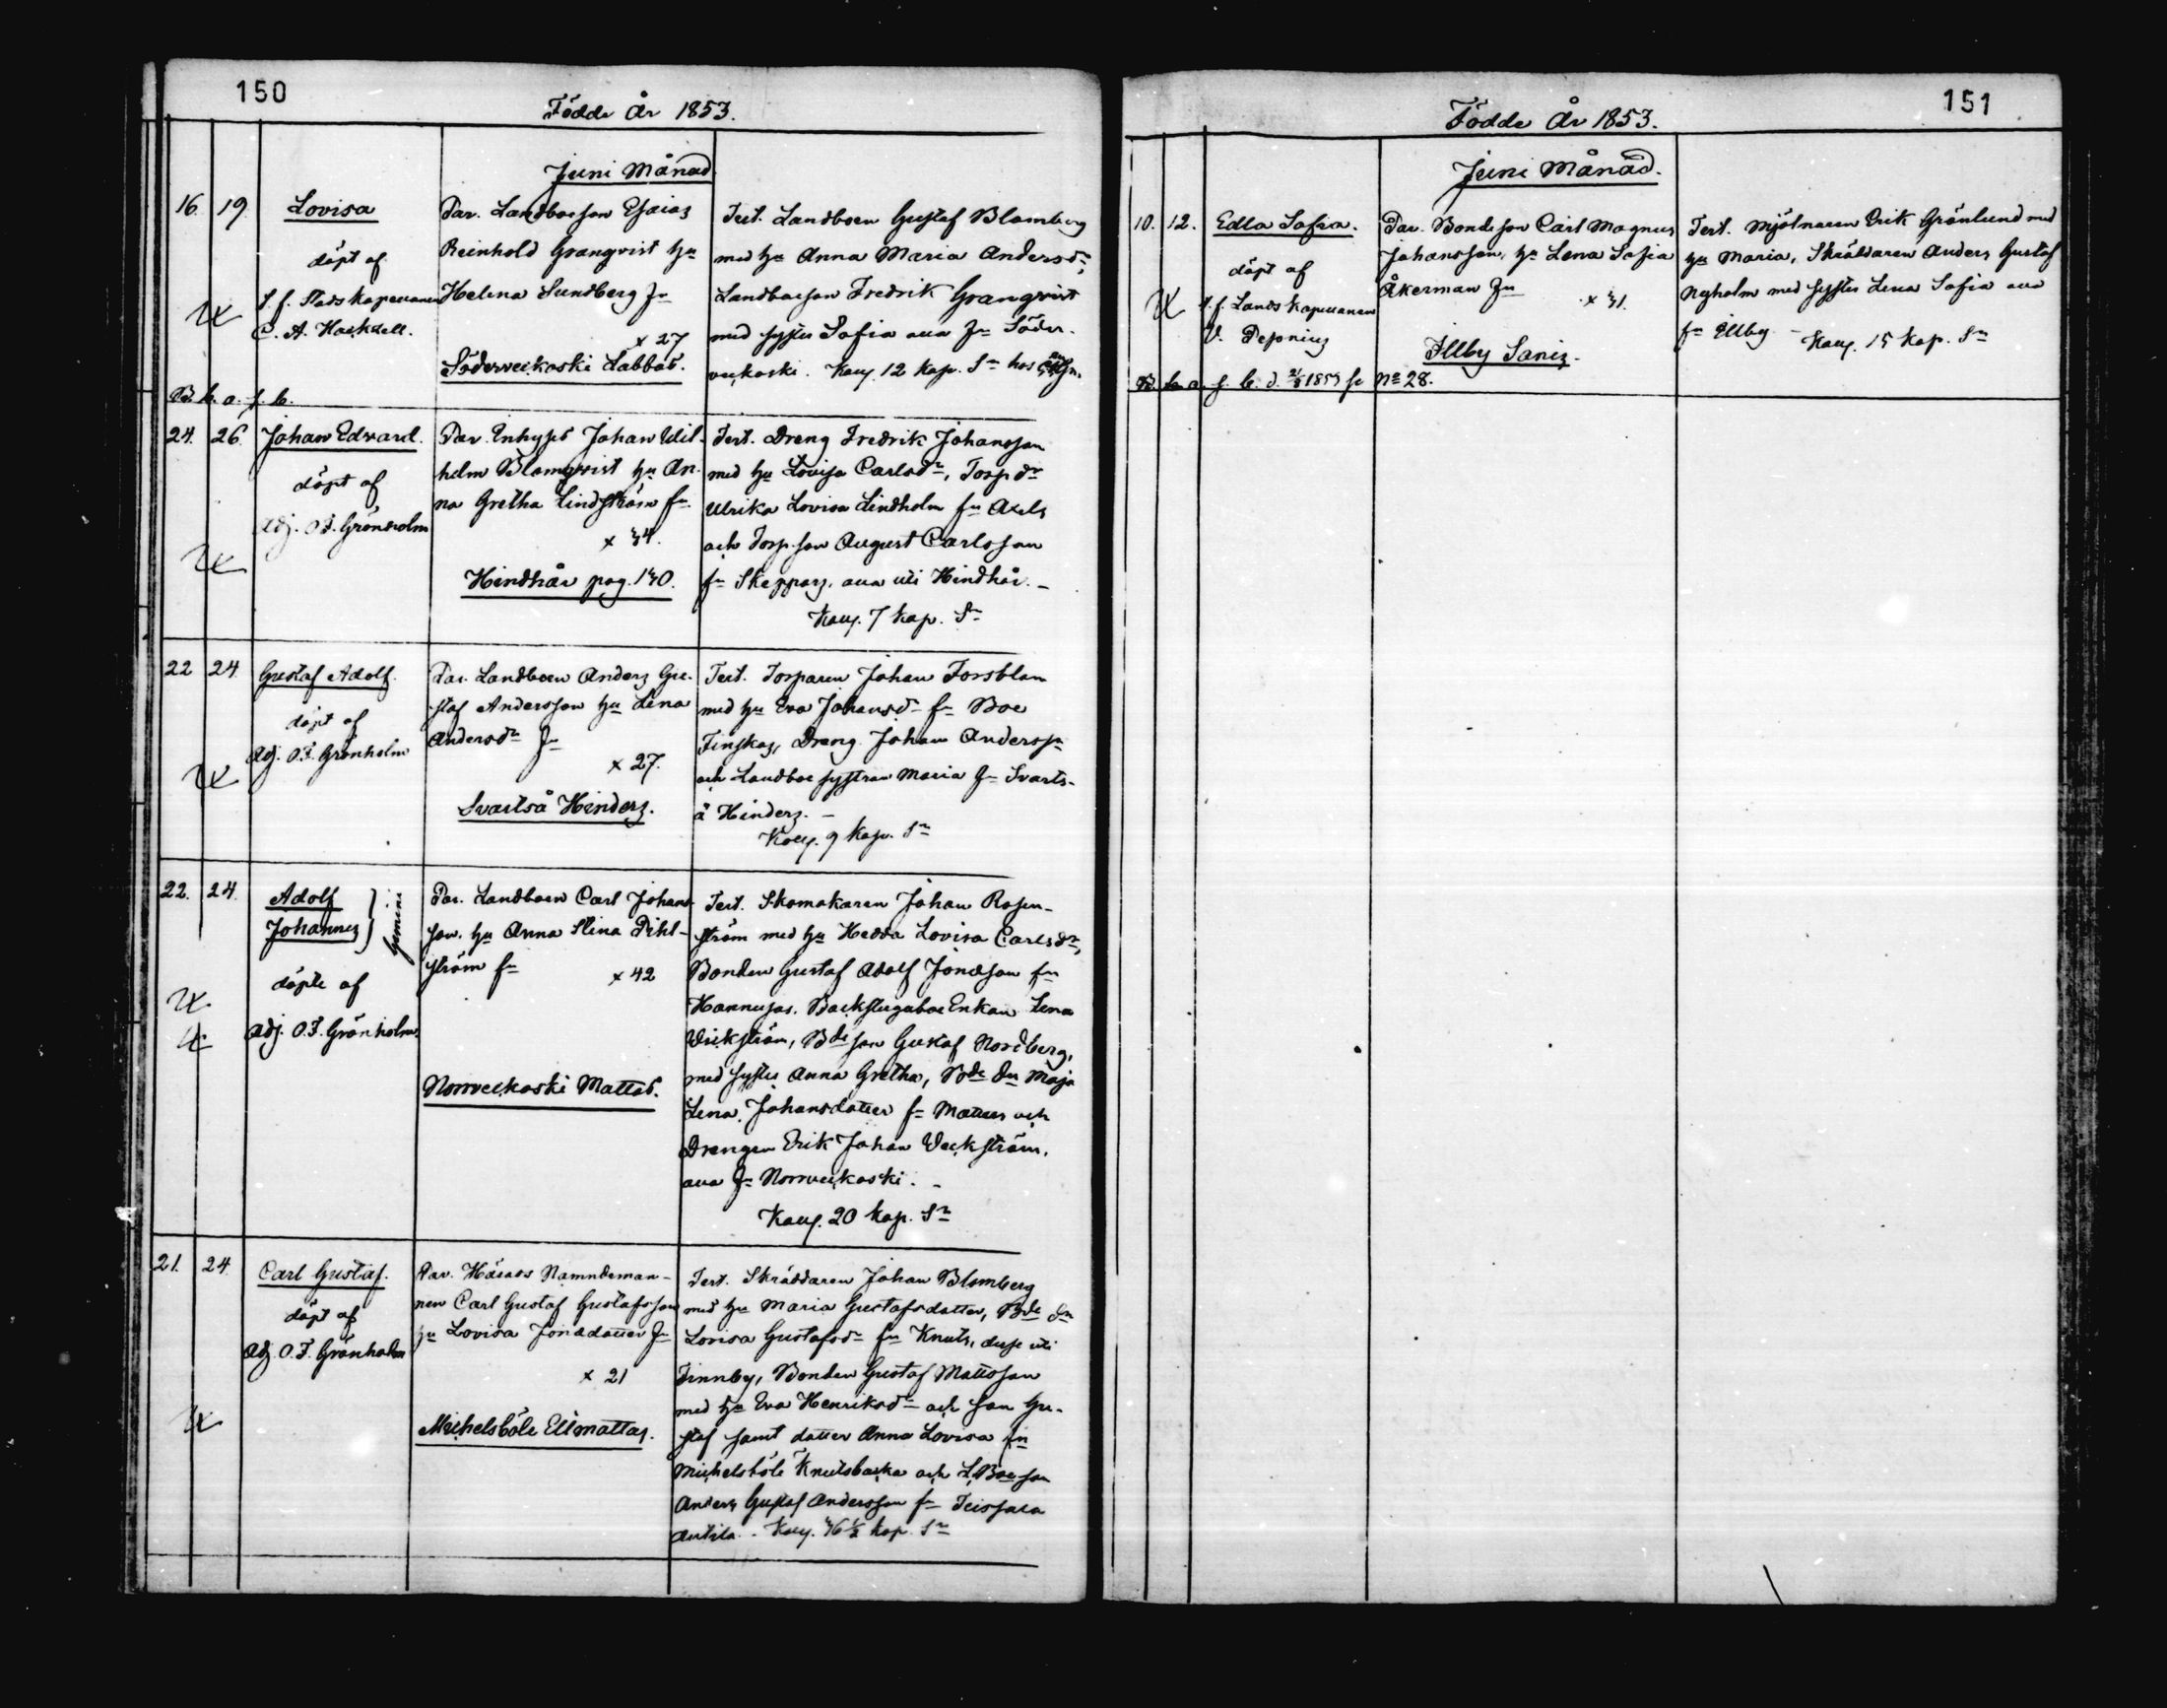 150
Födde År 1853.
Juni Månad
16. 19. Lovisa
döpt af
t.f. Stadskapellanen
C. A. Hackzell.
Par. Landboeson Esaias
Reinhold Granqvist hu
Helena Sundberg fr
x 27
Söderveckoski Labbas.
Test. Landboen Gustaf Blomberg
med hu Anna Maria Andersdr,
Landboeson Fredrik Granqvist
med syster Sofia alla fr Söder-
veckoski. Koll. 12 kop. Sr hos
B. b. a. f. b.
24. 26. Johan Edvard.
döpt af
Adj. O.F. Grönholm
Par. Inhyses Johan Wil-
helm Blomqvist hu An-
na Gretha Lindström fr
x 34.
Hindhår pag. 140.
Test. Dreng Fredrik Johansson
med hu Lovisa Carlsdr, Torp dr
Ulrika Lovisa Lindholm fr Axels
och Torp. son August Carlsson
fr Skeppars, alla uti Hindhår. –
Koll. 7 kop. Sr
22 24. Gustaf Adolf.
döpt af
Adj. O.F. Grönholm
Par. Landboen Anders Gu-
staf Andersson hu Lena
Andersdr fr
x 27.
Svartså Hinders.
Test. Torparen Johan Forsblom
med hu Eva Johansdr fr Boe
Finskas, Dreng Johan Anderss
och Landboe systran Maria fr Svarts-
å Hinders. –
Koll. 9 kop. Sr
22. 24. Adolf
Johannes } gemini
döpte af
Adj. O.F. Grönholm.
Par. Landboen Carl Johans-
son. hu Anna Stina Pihl-
ström fr
x 42
Norrveckoski Mattas.
Test. Skomakaren Johan Rosen-
ström med hu Hedda Lovisa Carlsdr,
Bonden Gustaf Adolf Jonasson fr
Hannusas. Backstugaboe Enkan Lena
Wickström, Bde son Gustaf Nordberg,
med syster Anna Gretha, Bde dr Maja
Lena Johansdatter fr Mattas och
Drengen Erik Johan Weckström.
alla fr Norrveckoski. –
Koll. 20 kop. Sr
21. 24. Carl Gustaf.
döpt af
Adj. O.F. Grönholm
Par. Härads Nämndeman-
nen Carl Gustaf Gustafsson
hu Lovisa Jonasdatter fr
x 21
Michelsböle Ellmattas.
Test. Skräddaren Johan Blomberg
med hu Maria Gustafsdatter, Bde dr
Lovisa Gustafsdr fr Knuts, desse uti
Finnby, Bonden Gustaf Mattsson
med hu Eva Henriksdr och son Gu-
staf samt datter Anna Lovisa fr
Michelsböle Knutsbacka och L. Boeson
Anders Gustaf Andersson fr Teissala
Antila. – Koll. 46½ kop. Sr
151
Födde År 1853.
Juni Månad.
10. 12. Edla Sofia.
döpt af
t.f. Lands Kapellanen
Par. Bondeson Carl Magnus
Johansson, hu Lena Sofia
Åkerman fr
x 31.
Illby Sanis.
Test. Mjölnaren Erik Grönlund med
hu Maria, Skräddaren Anders Gustaf
Nyholm med syster Lena Sofia alla
fr Illby – Koll. 15 kop. Sr
B. b. a. f. b. d. 21/8 1859 se No 28.